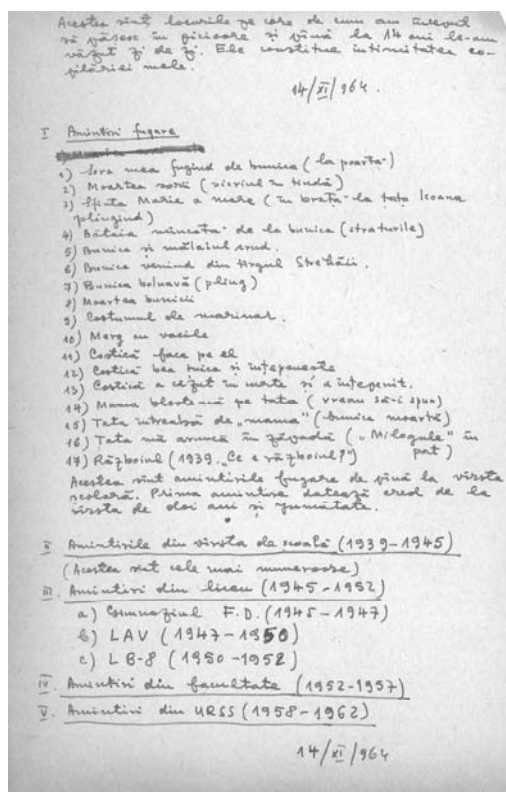 Acestea sînt locurile pe care de cum am început
să păşesc în picioare şi pînă la 14 ani le-am
văzut zi de zi. Ele constitue intimitatea co-
pilăriei mele.
14/XI/964.
I Amintiri fugare
1) Sora mea fugind de bunica (la poartă)
2) Moartea sorii (sicriul în tindă)
3) Sfînta Marie a mare (în braţe la tata Icoana
plîngînd)
4) Bătaia mîncată de la bunica (straturile)
5) Bunica şi mălaiul crud.
6) Bunica venind din tîrgul Strehăii.
7) Bunica bolnavă (plîng)
8) Moartea bunicii
9) Costumul de marinar.
10) Merg cu vacile
11) Costică face pe el
12) Costică bea ţuica şi înţepeneşte
13) Costică a căzut în şi a înţepenit.
14) Mama pe tata (vreau să-i spun)
15) Tata întreabă de „mama" (bunica moartă)
16) Tata mă aruncă în zăpadă („Milogule" în
pat)
17) Războiul (1939. „Ce e războiul?")
Acestea sînt amintirile fugare de pînă la vîrsta
şcolară. Prima amintire datează cred de la
vîrsta de doi ani şi jumătate.
II Amintirile din vîrsta de şcoală (1939-1945)
(Acestea sînt cele mai numeroase)
III. Amintiri din liceu (1945-1952)
a) Gimnaziul F.D. (1945-1947)
b) LAV (1947-1950)
c) LB-8 (1950-1952)
IV. Amintiri din facultate (1952-1957)
V. Amintiri din URSS (1958-1962)
14/XI/964